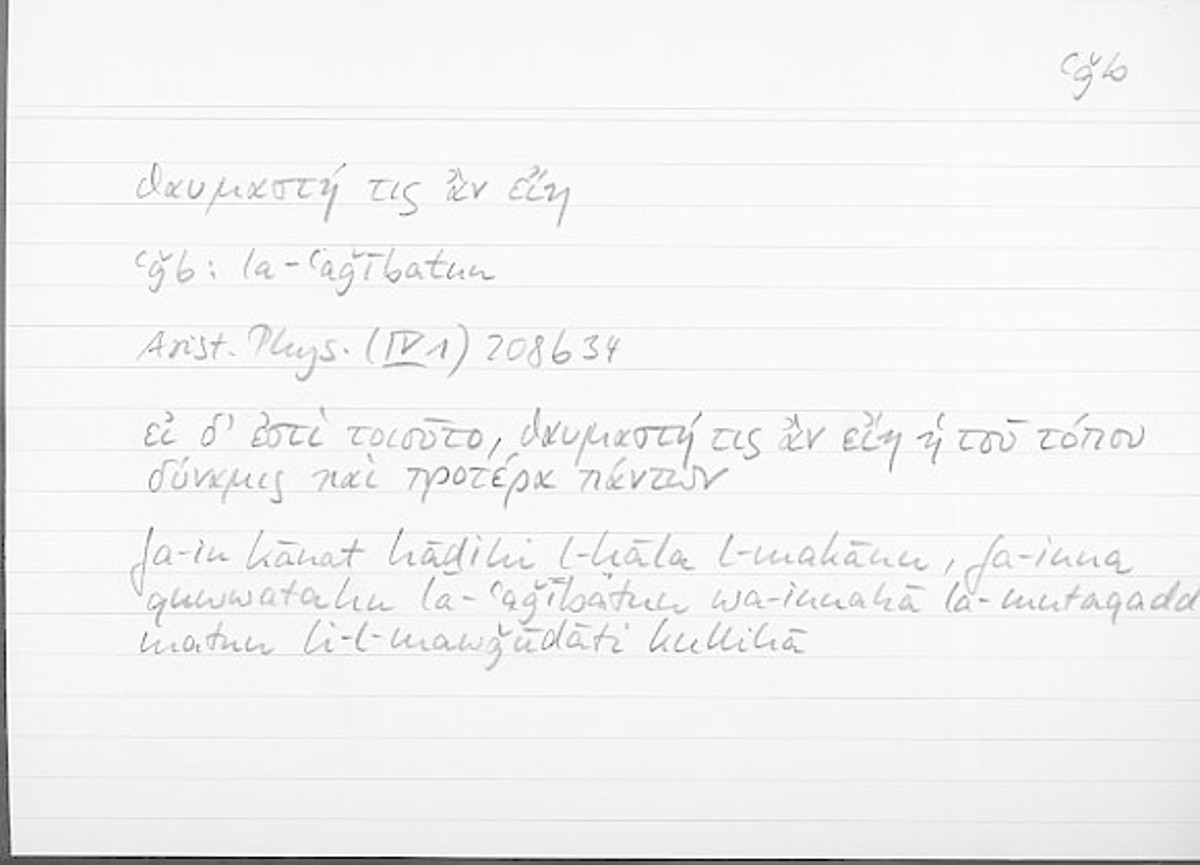 ʿǧb
θαυμαστή τις ἂν εἴη
ʿǧb: la-ʿaǧībatun
Arist. Phys. (IV 1) 208b34
εἰ δ' ἐστὶ τοιοῦτο, θαυμαστή τις ἂν εἴη ἡ τοῦ τόπου
δύναμις καὶ προτέρα πάντων
fa-in kānat hāḏihi l-ḥāla l-makānu, fa-inna
quwwatahu la-ʿaǧībatun wa-innahā la-mutaqadd
matun li-l-mawǧūdāti kullihā